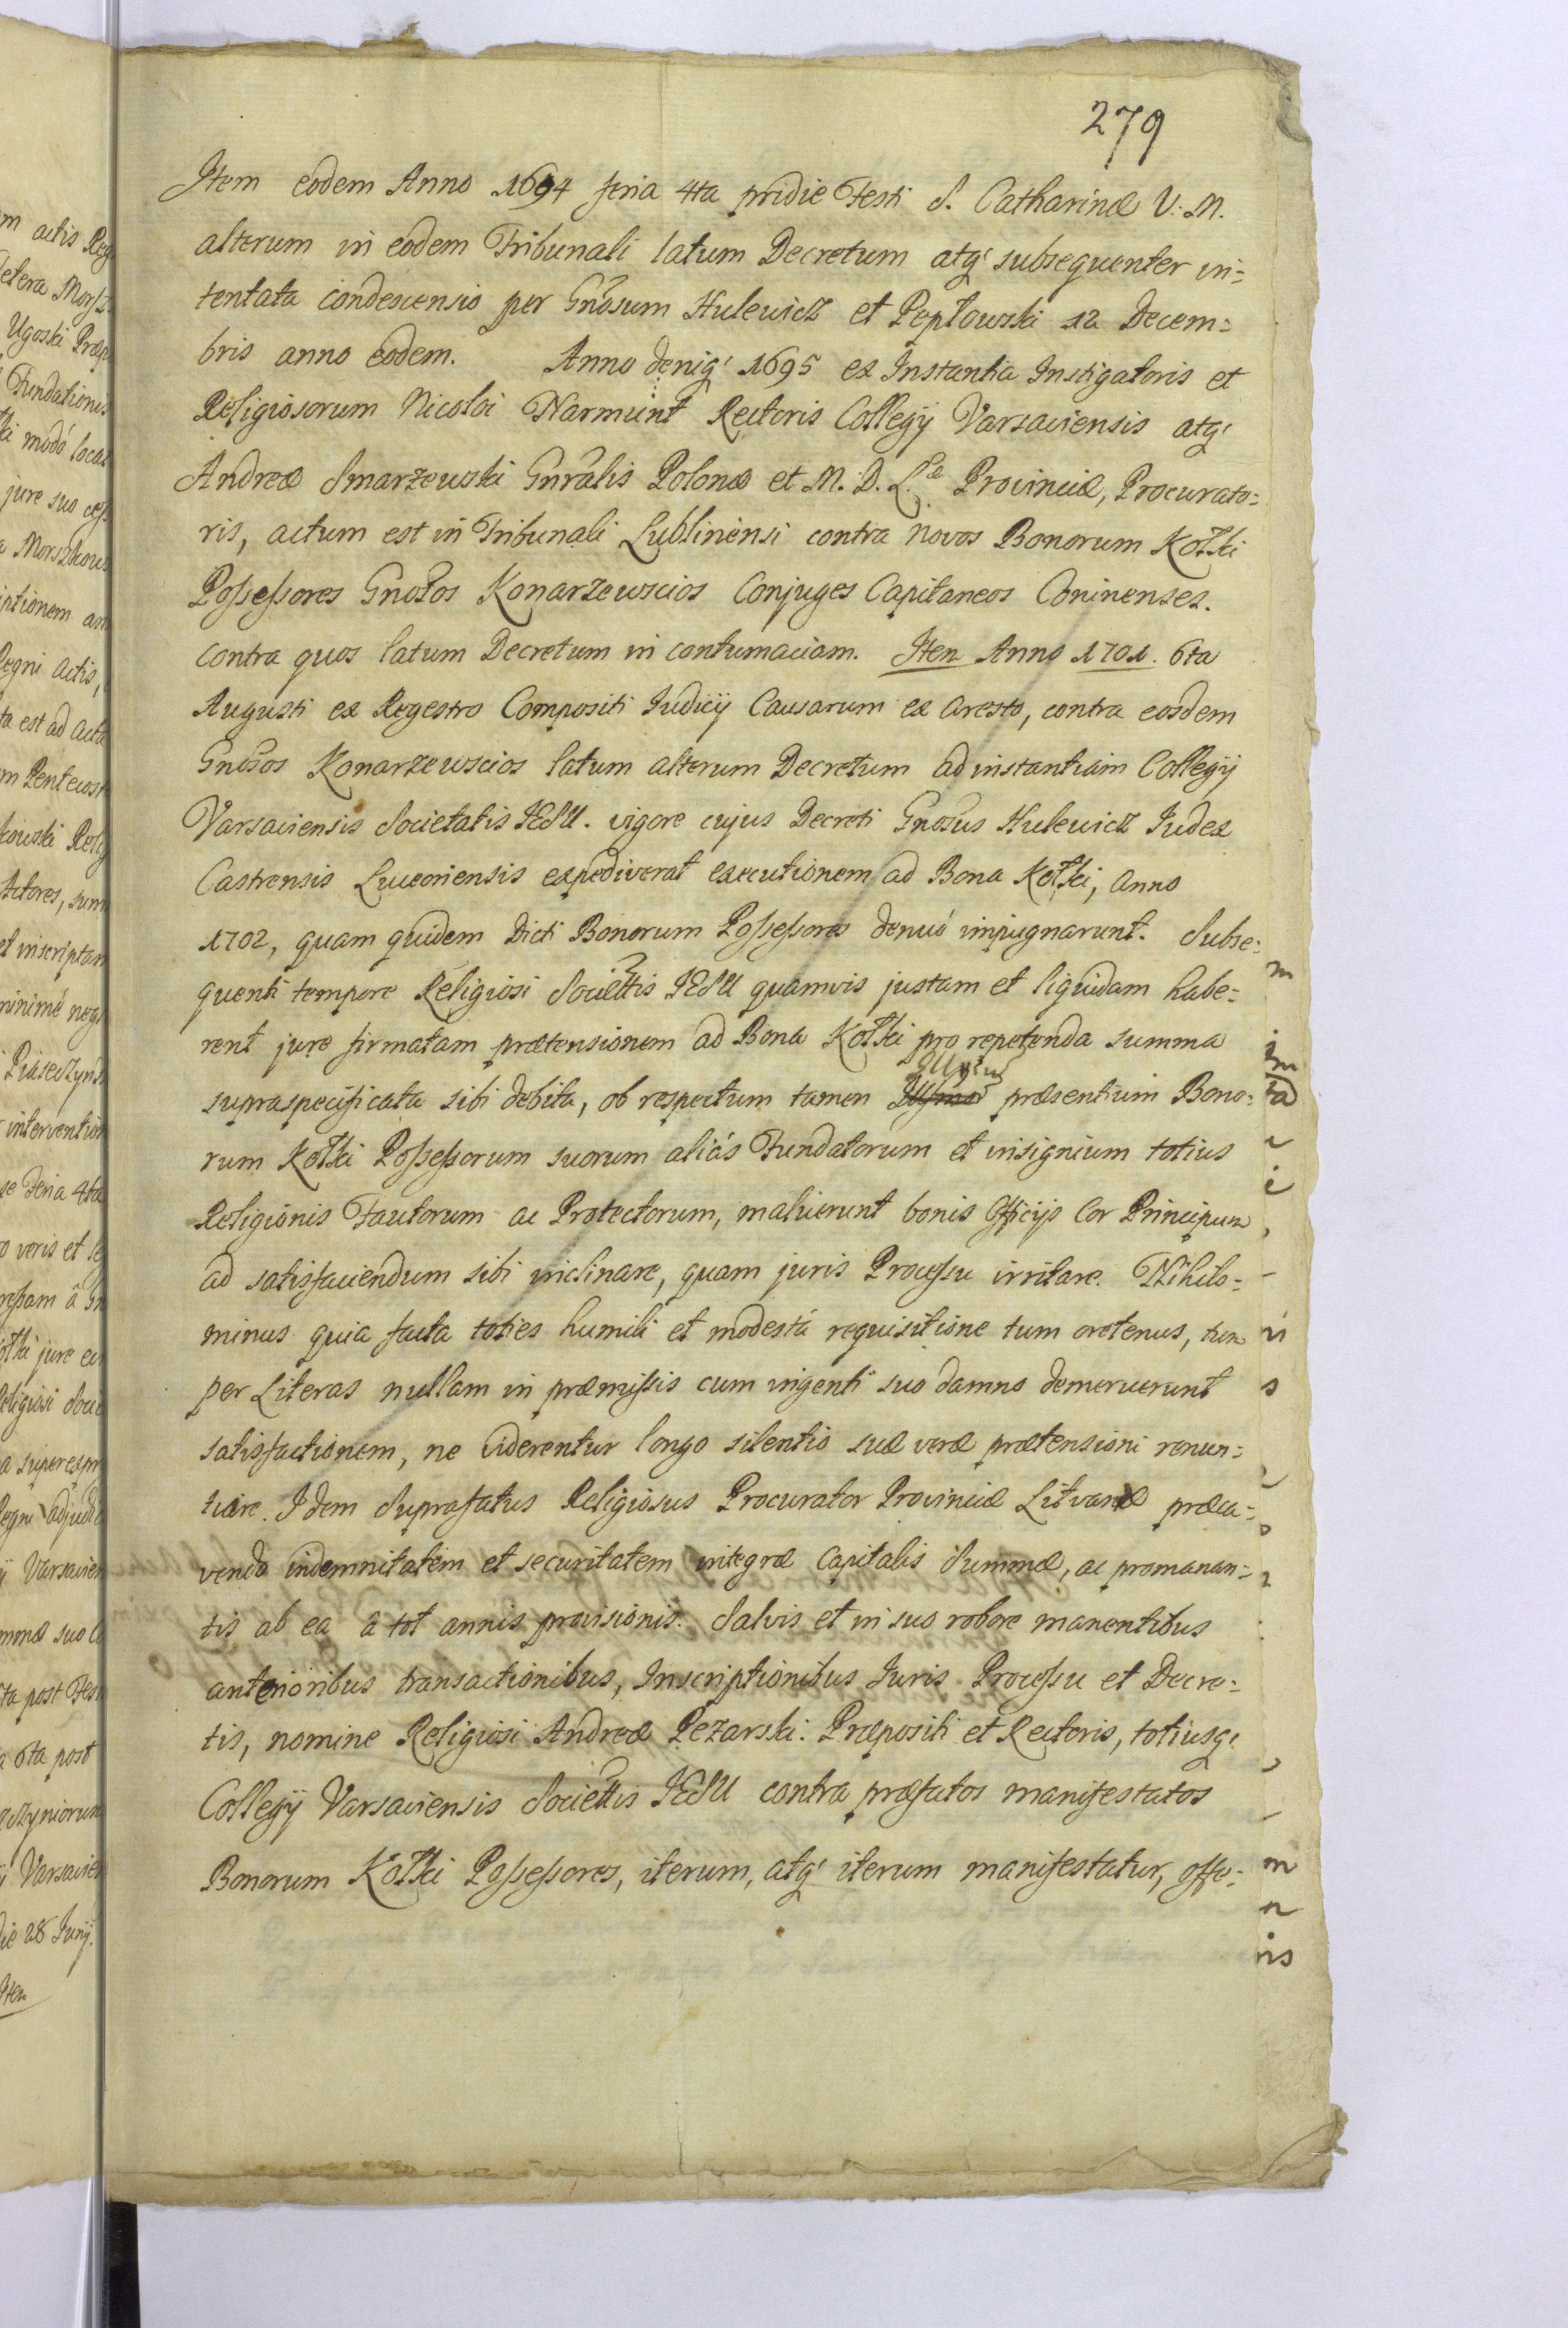 279
Item eodem Anno 1694 feria 4ta pridie Festi S. Catharinæ V. M.
alterum in eodem Tribunali latum Decretum atq' subsequenter in=
tentata condescensio per Gnosum Hulewicz et Peptowski 12 Decem=
bris anno eodem. Anno deniq' 1695 ex Instantia Instigatoris et
Religiosorum Nicolai Narmunt Rectoris Collegij Varsaviensis atq'
Andreæ Smarzewski Gnralis Polonæ et M. D. L.æ Provinciæ, Procurato=
ris, actum est in Tribunali Lublinensi contra novos Bonorum Kołki
Possessores Gnosos Konarzewscios Conjuges Capitaneos Coninenses.
contra quos latum Decretum in contumaciam. Item Anno 1701. 6ta
Augusti ex Regestro Compositi Iudicij Causarum ex Aresto, contra eosdem
Gnosos Konarzewscios latum alterum Decretum ad instantiam Collegij
Varsaviensis Societatis IESU. vigore cujus Decreti Gnosus Hulewicz Iudex
Castrensis Luceoriensis expediverat executionem ad Bona Kołki, Anno
1702, quam quidem Dicti Bonorum Possessores denuó impugnarunt. Subse=
quenti tempore Religiosi Societtis IESU quamvis justam et liquidam habe=
rent jure firmatam prætensionem ad Bona Kołki pro repetenda summa
supraspecificata sibi debita, ob respectum tamen præsentium Bono=
rum Kołki Possessorum suorum aliás Fundatorum et insignium totius
Religionis Fautorum ac Protectorum, maluerunt bonis Officijs Cor Principum
ad satisfaciendum sibi inclinare, quam juris Processu irritare. Nihilo=
minus quia facta toties humili et modestá requisitione tum oretenus, tum
per Literas nullam in præmissis cum ingenti suo damno demeruerunt
satisfactionem, ne viderentur longo silentio suæ veræ prætensioni renun=
tiare. Idem Suprafatus Religiosus Procurator Provinciæ Litvanæ præca=
vendo indemnitatem et securitatem integræ Capitalis Summæ, ac promanan=
tis ab ea â tot annis provisionis. Salvis et in suo robore manentibus
anterioribus transactionibus, Inscriptionibus Iuris Processu et Decre=
tis, nomine Religiosi Andreæ Pezarski Præpositi et Rectoris, totiusq'
Collegij Varsaviensis Societtis IESU contra præfatos manifestatos
Bonorum Kołki Possessores, iterum, atq' iterum manifestatur, offe=